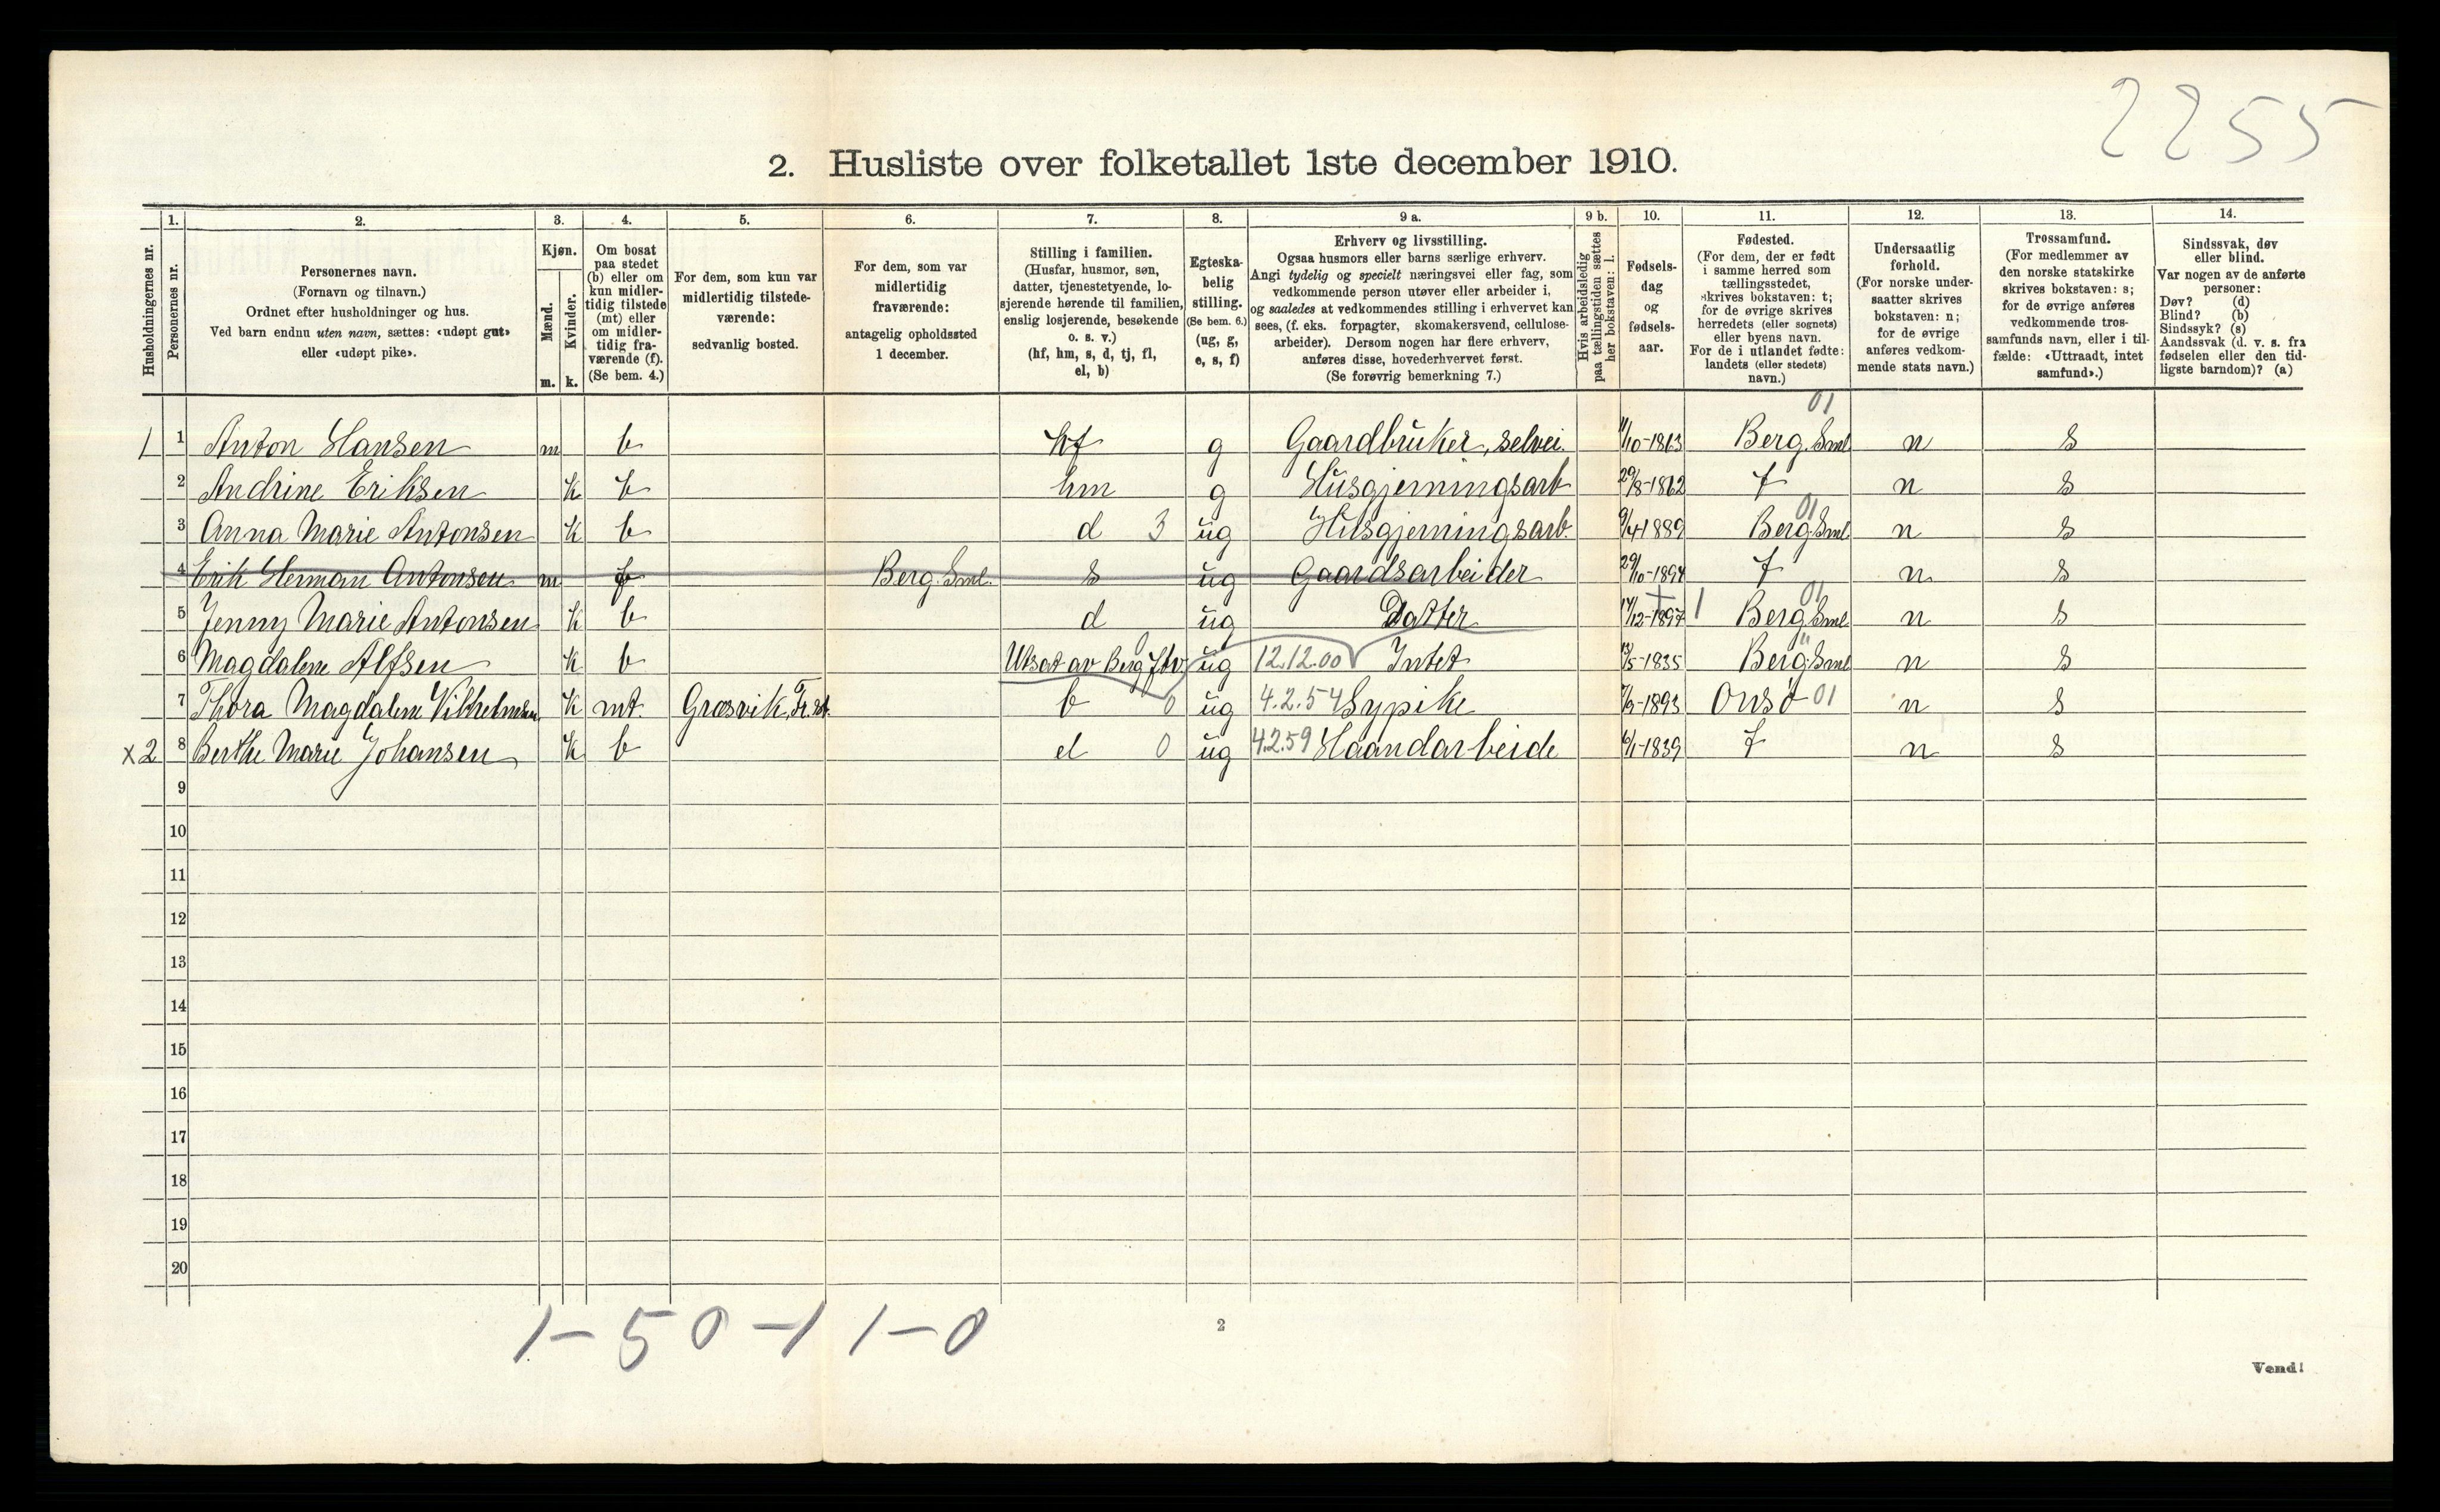 2255
2. Husliste over folketallet 1ste december 1910.
Husholdningernes nr.
1. Personernes nr.
2. Personernes navn.
(Fornavn og tilnavn.)
Ordnet efter husholdninger og hus.
Ved barn endnu uten navn, sættes: «udøpt gut»
eller «udøpt pike».
3. Kjøn.
Mænd. m.
Kvinder. k.
4. Om bosat
paa stedet
(b) eller om
kun midler-
tidig tilstede
(mt) eller
om midler-
tidig fra-
værende (f).
(Se bem. 4.)
5. For dem, som kun var
midlertidig tilstede-
værende:
sedvanlig bosted.
6. For dem, som var
midlertidig
fraværende:
antagelig opholdssted
1 december.
7. Stilling i familien.
(Husfar, husmor, søn,
datter, tjenestetyende, lo-
sjerende hørende til familien,
enslig losjerende, besøkende
o. s. v.)
(hf, hm, s, d, tj, fl,
el, b)
8. Egteska-
belig
stilling.
(Se bem. 6.)
(ug, g,
e, s, f)
9 a. Erhverv og livsstilling.
Ogsaa husmors eller barns særlige erhverv.
Angi tydelig og specielt næringsvei eller fag, som
vedkommende person utøver eller arbeider i,
og saaledes at vedkommendes stilling i erhvervet kan
sees, (f. eks. forpagter, skomakersvend, cellulose-
arbeider). Dersom nogen har flere erhverv,
anføres disse, hovederhvervet først.
(Se forøvrig bemerkning 7.)
9 b. Hvis arbeidsledig
paa tællingstiden sættes
her bokstaven: l.
10. Fødsels-
dag
og
fødsels-
aar.
11. Fødested.
(For dem, der er født
i samme herred som
tællingsstedet,
skrives bokstaven: t;
for de øvrige skrives
herredets (eller sognets)
eller byens navn.
For de i utlandet fødte:
landets (eller stedets)
navn.)
12. Undersaatlig
forhold.
(For norske under-
saatter skrives
bokstaven: n;
for de øvrige
anføres vedkom-
mende stats navn.)
13. Trossamfund.
(For medlemmer av
den norske statskirke
skrives bokstaven: s;
for de øvrige anføres
vedkommende tros-
samfunds navn, eller i til-
fælde: «Uttraadt, intet
samfund».)
14. Sindssvak, døv
eller blind.
Var nogen av de anførte
personer:
Døv? (d)
Blind? (b)
Sindssyk? (s)
Aandssvak (d. v. s. fra
fødselen eller den tid-
ligste barndom)? (a)
01
1 1 Anton Hansen m b hf g Gaardbruker, selvei. 11/10-1863 Berg. Sml. n s
2 Andrine Eriksen k b hm g Husgjerningsarb 29/8-1862 t n s
01
3 Anna Marie Antonsen k b d 3 ug Husgjerningsarb. 9/4-1889 Berg. Sml. n s
4 Erik Herman Antonsen m f Berg. Sml. s ug Gaardsarbeider 29/10-1894 t n s
01
5 Jenny Marie Antonsen k b d ug Datter 14/12-1897 1 Berg. Sml. n s
6 Magdalene Alfsen k b Utsat av Berg ftv. 0 ug 12.12.00 Intet 13/5-1835 Berg. Sml. n s
7 Thora Magdalene Vilhelmsen k mt. Græsvik, Fr.st. b 0 ug 4.2.54 Sypike 7/9-1893 Onsø 01 n s
x2 8 Berthe Marie Johansen k b el 0 ug 4.2.59 Haandarbeide 6/1-1839 t n s
9
10
11
12
13
14
15
16
17
18
19
20
1-50-11-0
2
Vend!